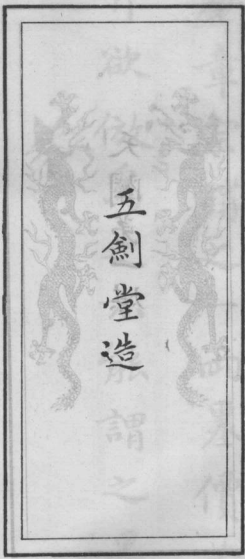 五劍堂造